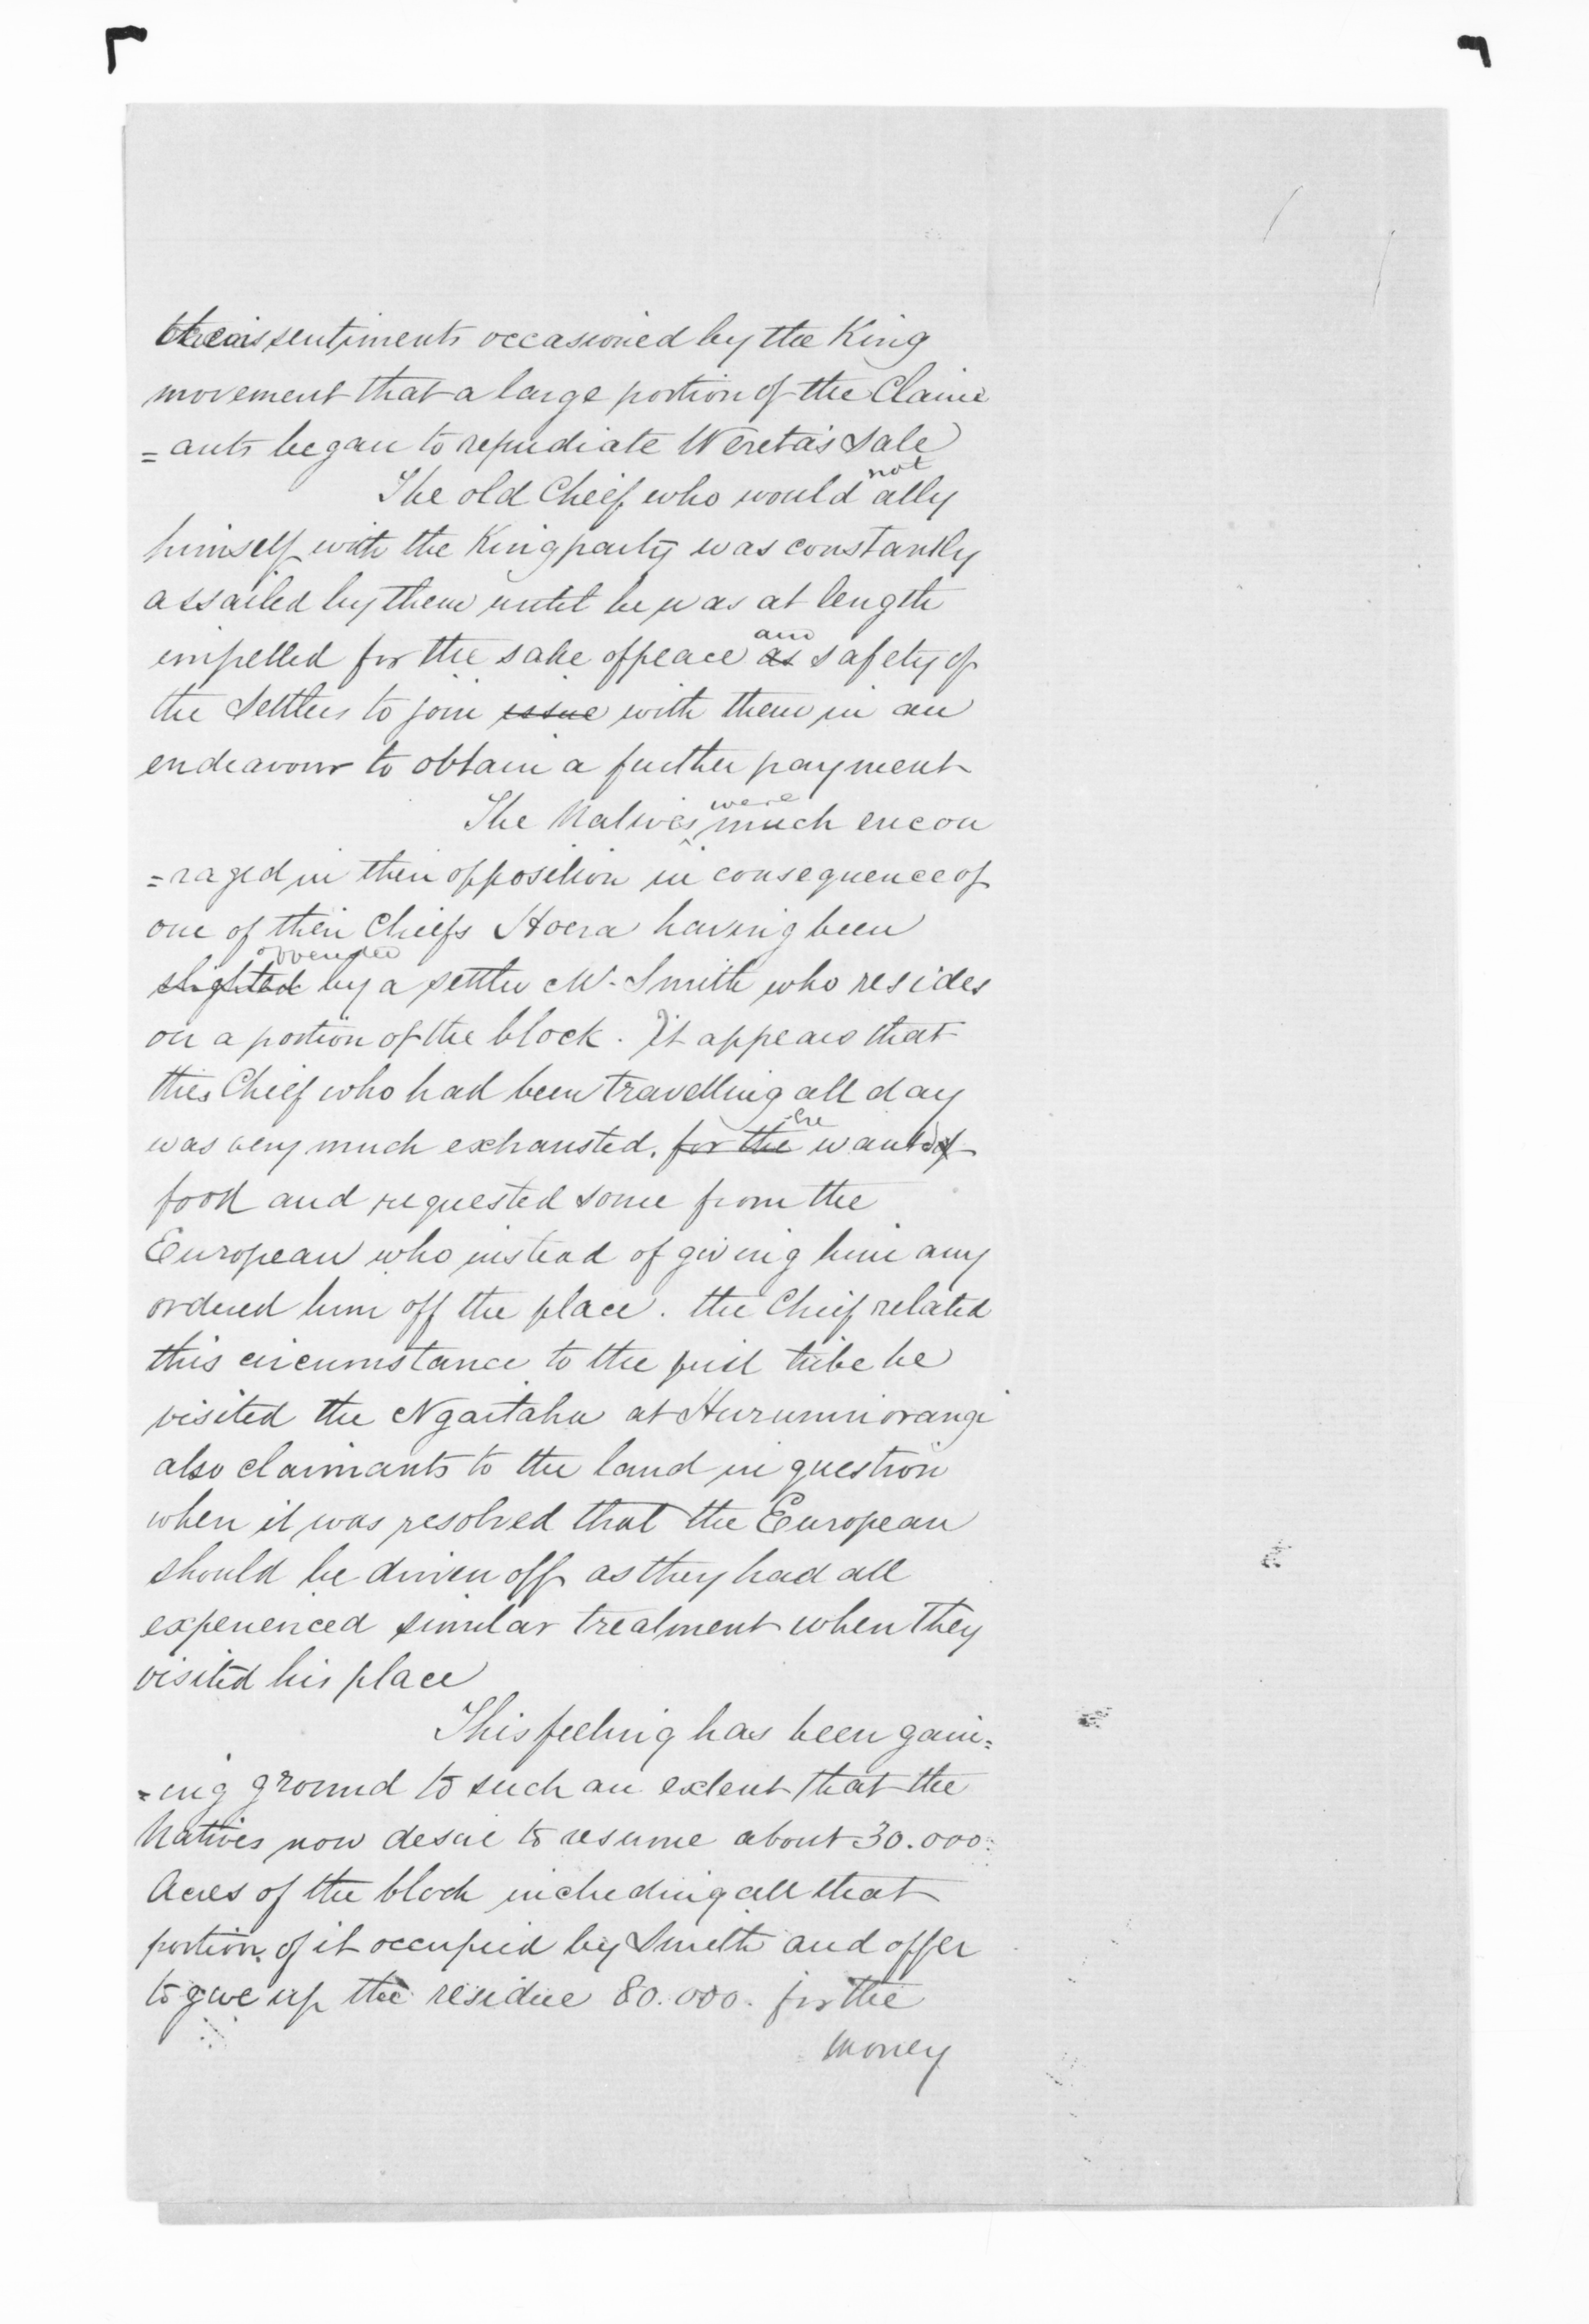 their sentiments occasioned by the King
movement that a large portion of the Claim
= ants began to repudiate Wereta's Sale
not
The old Chief who would ally
himself with the King party was constantly
assailed by them until he was at length
and
impelled for the sake of peace as safety of
the Settlers to join issue with them in an
endeavour to obtain a further payment
were
The Natives much encou
=raged in their opposition in consequence of
one of their Chiefs Hoera having been
offended
slighted by a settler Mr. Smith who resides
on a portion of the block. It appears that
this Chief who had been travelling all day
he
was very much exhausted, for the wanted
food and requested some from the
European who instead of giving him any
ordered him off the place. the Chief related
this circumstance to the first tribe he
visited the Ngaitahu at Hurumiorangi
also claimants to the land in question
when it was resolved that the European
should be driven off as they had all
experienced similar treatment when they
visited his place
This feeling has been gain=
=ing ground to such an extent that the
Natives now desire to resume about 30.000
Acres of the block including all that
portion of it occupied by Smith and offer
to give up the residue 80.000. for the
money